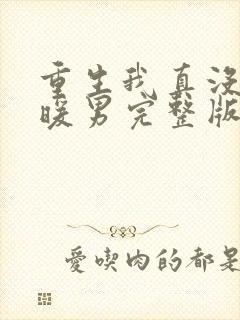 重生我真没
暖男完整版
爱喫肉的都是